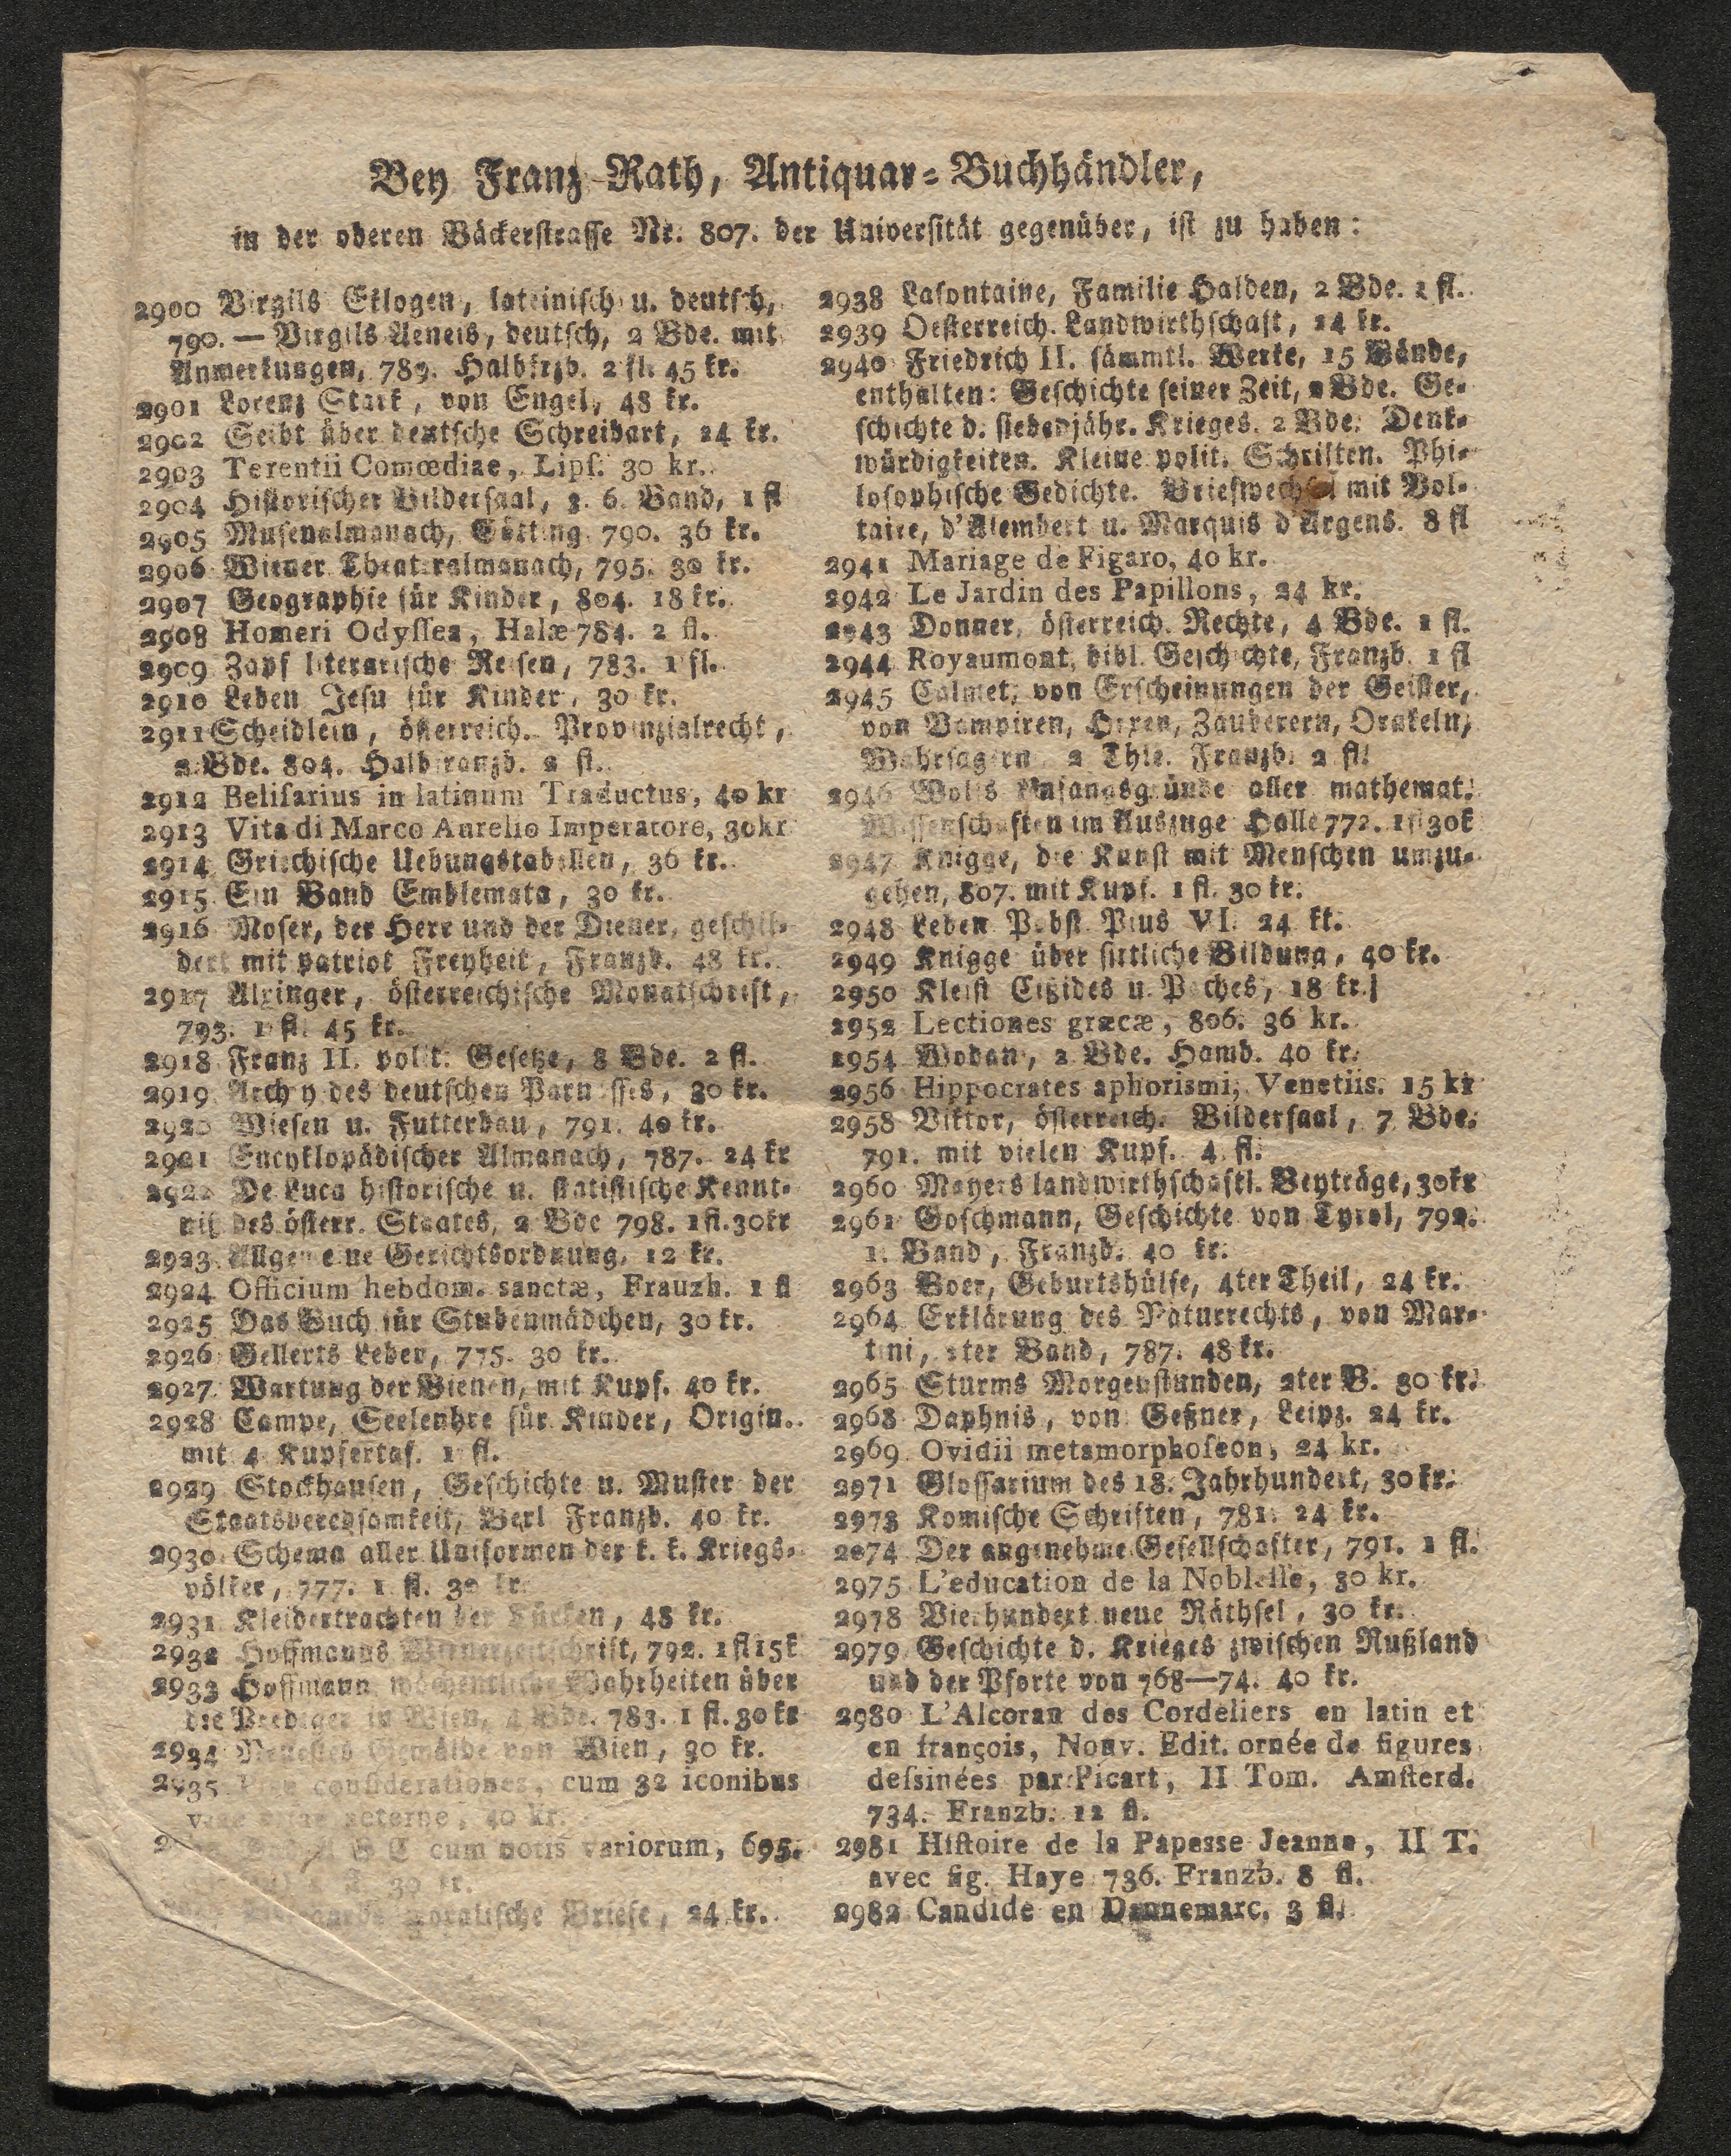 Bey Franz Rath, Antiquar-Buchhändler,
in der oberen Bäckerstrasse Nr. 807. der Universität gegenüber, ist zu haben:
2900 Virgils Eklogen, lateinisch u. deutsch,
790. — Virgils Aeneis, deutsch, 2 Bde. mit
Anmerkungen, 789. Halbfrzb. 2 fl. 45 kr.
2901 Lorenz Stark, von Engel, 48 kr.
2902 Seibt über deutsche Schreibart, 24 kr.
2903 Terentii Comœdiae, Lips. 30 kr.
2904 Historischer Bildersaal, 3. 6. Band, 1 fl
2905 Musenalmanach, Götting. 790. 36 kr.
2906 Wiener Theateralmanach, 795. 30 kr.
2907 Geographie für Kinder, 804. 18 kr.
2908 Homeri Odyssea, Halæ 784. 2 fl.
2909 Zapf literarische Reisen, 783. 1 fl.
2910 Leben Jesu für Kinder, 30 kr.
2911 Scheidlein, österreich. Provinzialrecht,
2 Bde. 804. Halbfranzb. 2 fl.
2912 Belisarius in latinum Traductus, 40 kr
2913 Vita di Marco Aurelio Imperatore, 30kr
2914 Griechische Uebungstabellen, 36 kr.
2915 Ein Band Emblemata, 30 kr.
2916 Moser, der Herr und der Diener, geschil-
dert mit patriot Freyheit, Franzb. 48 kr.
2917 Alxinger, österreichische Monatschrift,
793. 1 fl. 45 kr.
2918 Franz II. polit. Gesetze, 8 Bde. 2 fl.
2919 Archiv des deutschen Parnasses, 30 kr.
2920 Wiesen u. Futterbau, 791. 40 kr.
2921 Encyklopädischer Almanach, 787. 24 kr
2922 De Luca historische u. statistische Kennt-
niß des österr. Staates, 2 Bde 798. 1fl. 30kr
2923 Allgemeine Gerichtsordnung, 12 kr.
2924 Officium hebdom. sanctæ, Frauzb. 1 fl
2925 Das Buch für Stubenmädchen, 30 kr.
2926 Gellerts Leben, 775. 30 kr.
2927 Wartung der Bienen, mit Kupf. 40 kr.
2928 Campe, Seelenhre für Kinder, Origin.
mit 4 Kupfertaf. 1 fl.
2929 Stockhausen, Geschichte u. Muster der
Staatsberedsamkeit, Berl Franzb. 40 kr.
2930 Schema aller Uniformen der k. k. Kriegs-
völker, 777. 1 fl. 30 kr.
2931 Kleidertrachten der Türken, 48 kr.
2932 Hoffmanns Wienerzeitschrift, 792. 1fl 15k
2933 Hoffmann wöchentliche Wahrheiten über
die Prediger in Wien, 4 Bde. 783. 1 fl. 30 kr
2934 Neuestes Gemälde von Wien, 30 kr.
2935 considerationes, cum 32 iconibus
aeterne, 40 kr.
cum notis variorum, 695.
30 kr.
moralische Briefe, 24 kr.
2938 Lafontaine, Familie Halden, 2 Bde. 1 fl.
2939 Oesterreich. Landwirthschaft, 24 kr.
2940 Friedrich II. sämmtl. Werke, 15 Bände,
enthalten: Geschichte seiner Zeit, 2 Bde. Ge-
schichte d. siebenjähr. Krieges. 2 Bde. Denk-
würdigkeiten. Kleine polit. Schriften. Phi-
losophische Gedichte. Briefwechsel mit Vol-
taire, d'Alembert u. Marquis d'Argens. 8 fl
2941 Mariage de Figaro, 40 kr.
2942 Le Jardin des Papillons, 24 kr.
2943 Donner, österreich. Rechte, 4 Bde. 1 fl.
2944 Royaumont, bibl. Geschichte, Franzb. 1 fl
2945 Calmet, von Erscheinungen der Geister,
von Vampiren, Hexen, Zauberern, Orakeln,
Wahrsagern 2 Thle. Franzb. 2 fl.
2946 Wolfs Anfangsgründe aller mathemat.
Wissenschaften im Auszuge Halle 772. 1fl 30k
2947 Knigge, die Kunst mit Menschen umzu-
gehen, 807. mit Kupf. 1 fl. 30 kr.
2948 Leben Pabst Pius VI. 24 kr.
2949 Knigge über sittliche Bildung, 40 kr.
2950 Kleist Cißides u. Paches, 18 kr.
2952 Lectiones græcæ, 806. 36 kr.
2954 Wodan, 2 Bde. Hamb. 40 kr.
2956 Hippocrates aphorismi, Venetiis. 15 kr
2958 Viktor, österreich. Bildersaal, 7 Bde.
791. mit vielen Kupf. 4 fl.
2960 Mayers landwirthschaftl. Beyträge, 30kr
2961 Goschmann, Geschichte von Tyrol, 792.
1. Band, Franzb. 40 kr.
2963 Boer, Geburtshülfe, 4ter Theil, 24 kr.
2964 Erklärung des Naturrechts, von Mar-
tini, 2ter Band, 787. 48 kr.
2965 Sturms Morgenstunden, 2ter B. 30 kr.
2968 Daphnis, von Geßner, Leipz. 24 kr.
2969 Ovidii metamorphoseon, 24 kr.
2971 Glossarium des 18. Jahrhundert, 30 kr.
2973 Komische Schriften, 781. 24 kr.
2974 Der angenehme Gesellschafter, 791. 1 fl.
2975 L'education de la Noblesse, 30 kr.
2978 Vierhundert neue Räthsel, 30 kr.
2979 Geschichte d. Krieges zwischen Rußland
und der Pforte von 768—74. 40 kr.
2980 L'Alcoran des Cordeliers en latin et
en françois, Nouv. Edit. ornée de figures
dessinées par Picart, II Tom. Amsterd.
734. Franzb. 12 fl.
2981 Histoire de la Papesse Jeanne, II T.
avec fig. Haye 736. Franzb. 8 fl.
2982 Candide en Dannemarc, 3 fl.